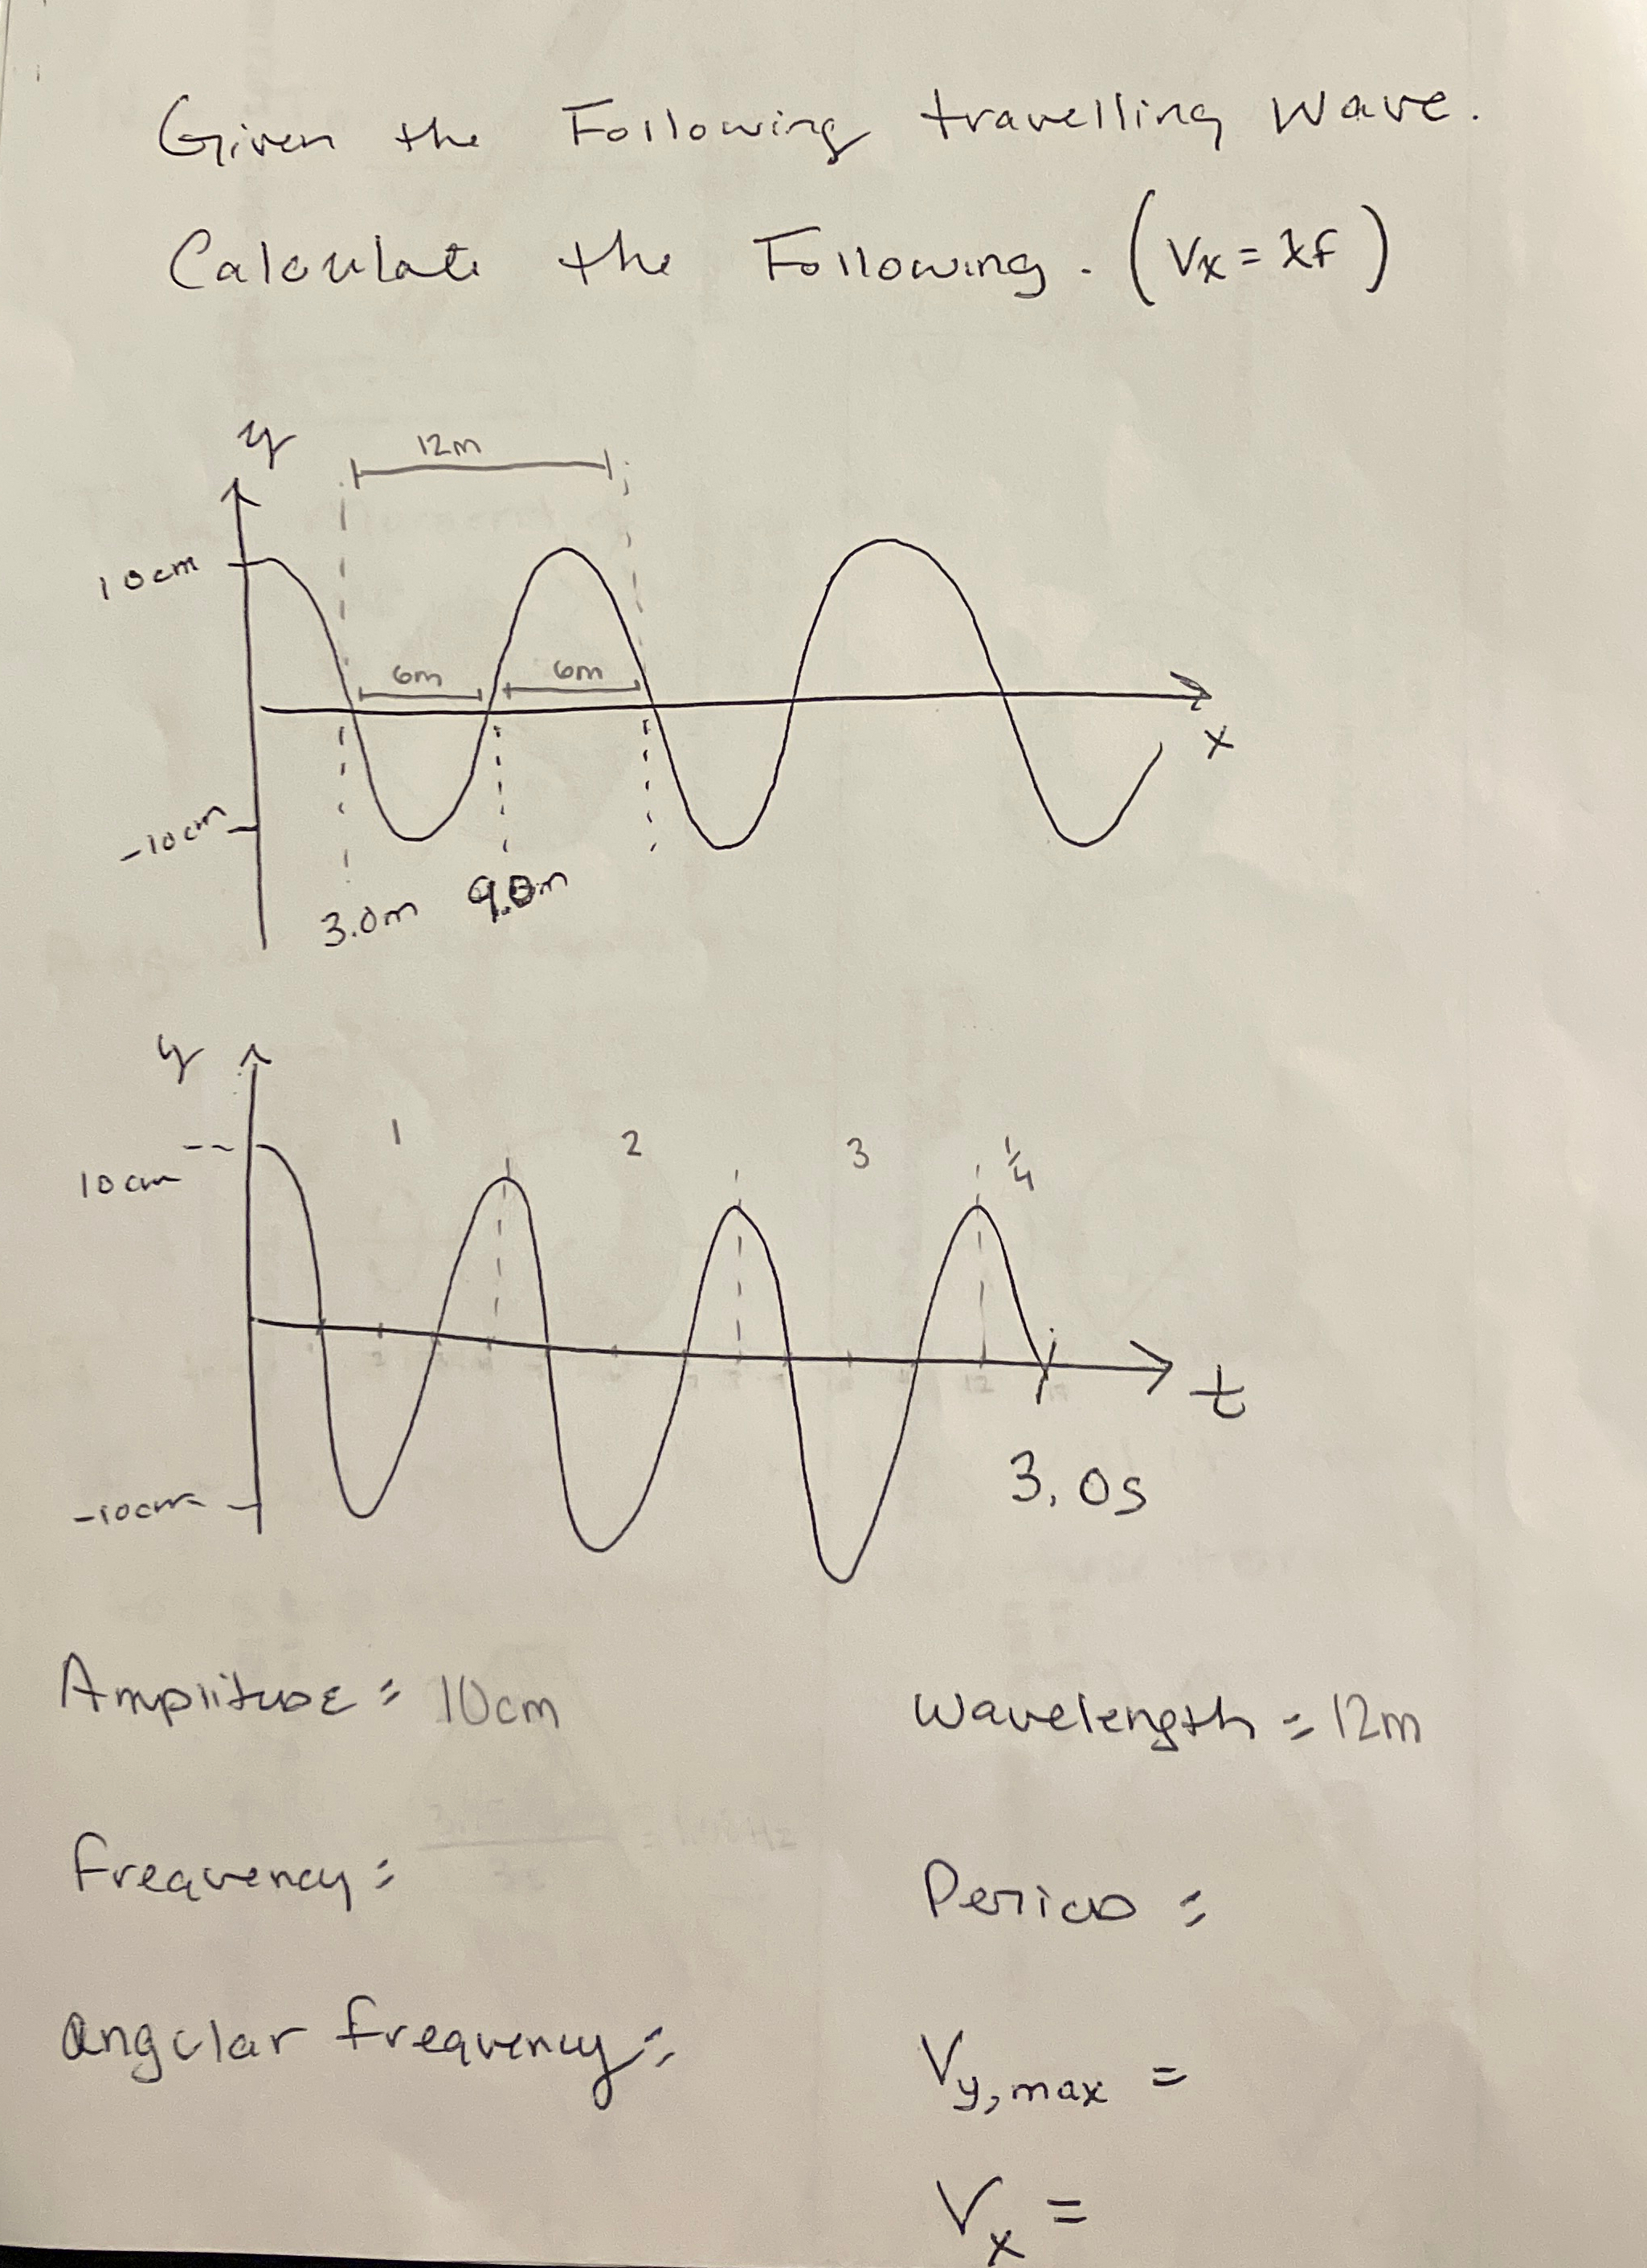 Given the Following travelling wave.
Calculate the Following. (Vx = λf)
y
12m
10cm
6m 6m
x
-10cm
3.0m 9.0m
y
1 2 3 1/4
10cm
t
3.0s
-10cm
Amplitude = 10cm
Wavelength = 12m
Frequency =
Period =
Angular frequency =
Vy,max =
Vx =